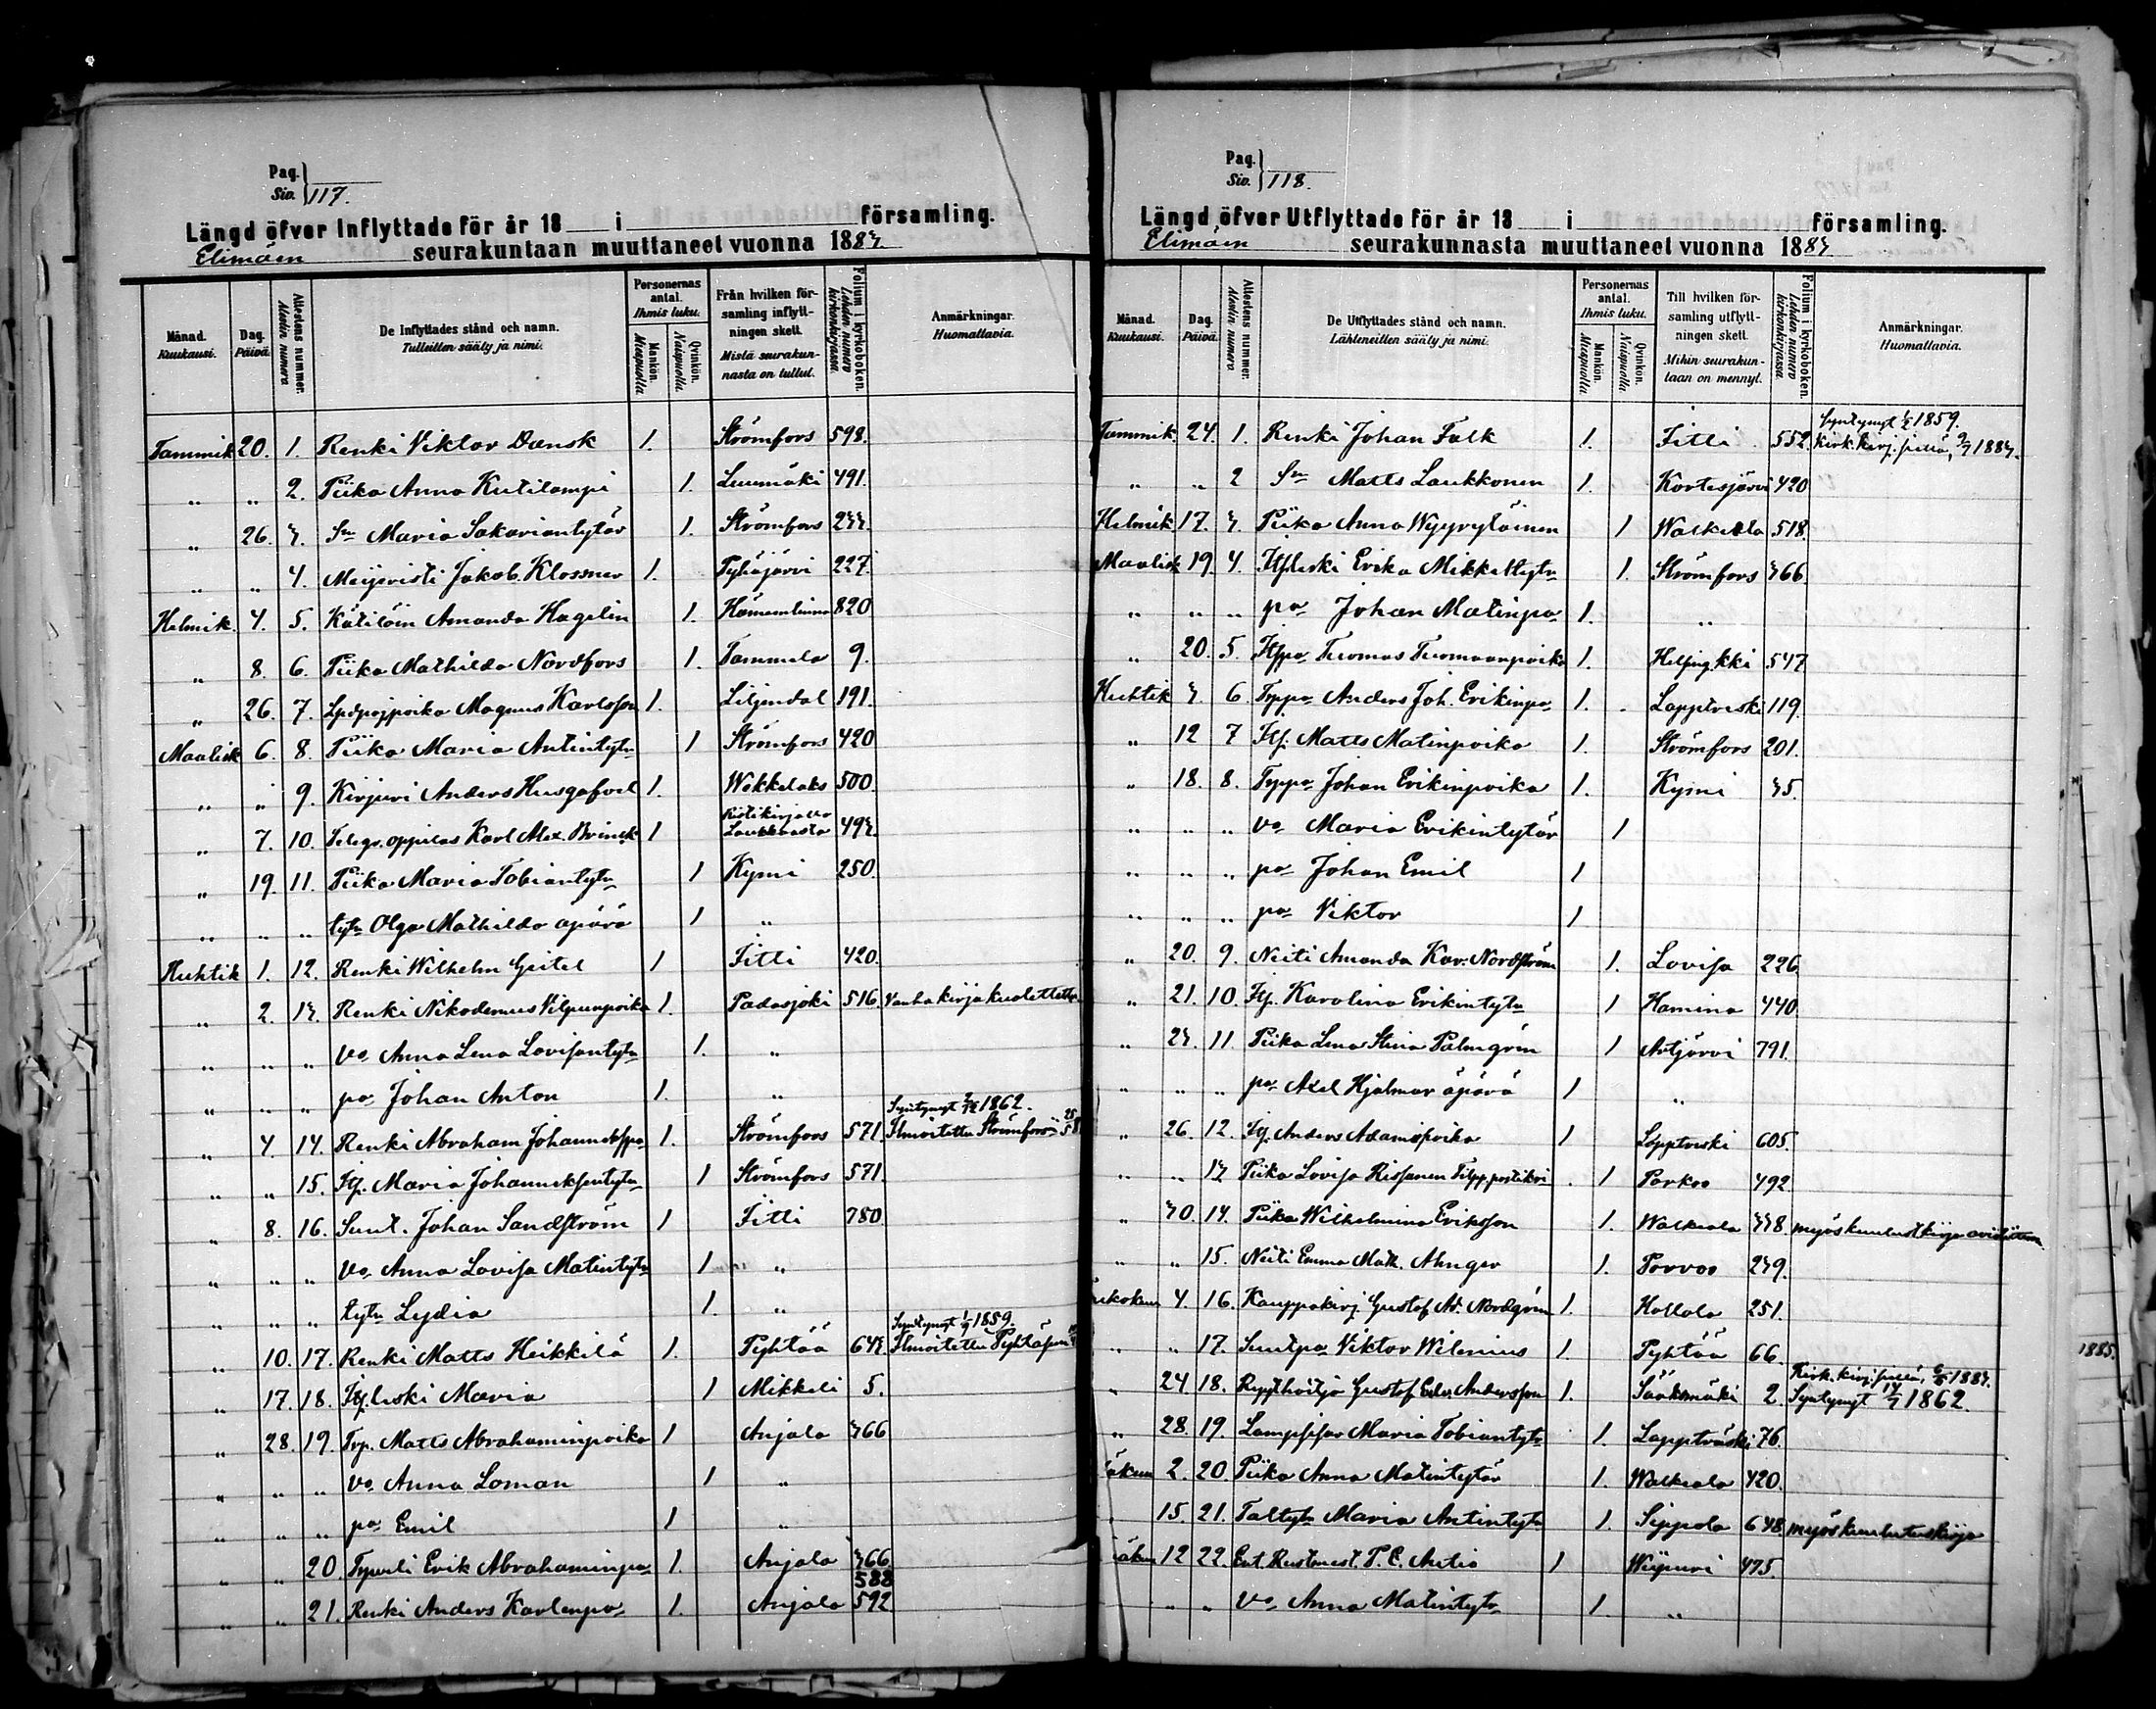 Pag.
Siv. 117.
Längd öfver Inflyttade för år 18 i församling.
Elimäen seurakuntaan muuttaneet vuonna 1883.
Månad.
Kuukausi.
Dag.
Päivä.
Attestens nummer.
Atestin numero.
De Inflyttades stånd och namn.
Tulleitten sääty ja nimi.
Personernas antal.
Ihmis luku.
Mankön.
Miespuolia
Qvinkön.
Naispuolia
Från hvilken församling inflyttningen skett.
Mistä seurakunnasta on tullut.
Folium i kyrkoboken.
Lehden numero kirkonkirjassa.
Anmärkningar.
Huomattavia.
Tammik 20. 1. Renki Viktor Dansk 1. Strömfors 598.
„ „ 2. Piika Anna Kutilampi 1. Luumäki 491.
„ 26. 3. Sn Maria Sakariantytär 1. Strömfors 233.
„ „ 4. Meijeristi Jakob Klossner 1. Pyhäjärvi 227.
Helmik. 4. 5. Kätilöin Amanda Hagelin 1. Hämeenlinna 820
„ 8. 6. Piika Mathilda Nordfors 1. Tammela 9.
„ 26. 7. Magnus Karlsson 1. Liljendal 191.
Maalisk 6. 8. Piika Maria Antintytr 1 Strömfors 420
„ „ 9. Kirjuri Anders Husgafvel 1. Wekkelaks 500.
„ 7. 10. Telegr. oppilas Karl Alex. Brinck 1 493.
„ 19. 11. Piika Maria Tobiantytr 1 Kymi 250.
„ „ „ tytr Olga Mathilda äpärä 1 „
Huhtik 1. 12. Renki Wilhelm Gritel 1 Iitti 420.
„ 2. 13. Renki Nikodemus Vilpunpoika 1. Padasjoki 516. Vanha kirja
„ „ „ Vo Anna Lena Lovisantytr 1. „
„ „ „ po Johan Anton 1. „
Syntynyt 1862.
„ 4. 14. Renki Abraham Johanneksspo 1. Strömfors 571 Ilmoitettu Strömforsiin
„ „ 15. Itj. Maria Johanneksentytr 1 Strömfors 571.
„ 8. 16. Sunt. Johan Sandström 1 Iitti 780.
„ „ „ Vo Anna Lovisa Matintytr 1 „
„ „ „ tytr Lydia 1. „
Syntynyt 1859.
„ 10. 17. Renki Matts Heikkilä 1. Pyhtää 643. Ilmoitettu Pyhtääseen
„ 17. 18. Itj. leski Maria 1 Mikkeli 5.
„ 28. 19. Trp. Matts Abrahaminpoika 1 Anjala 366
„ „ „ Vo Anna Loman 1 „
„ „ „ po Emil 1 „
„ „ 20. Erik Abrahaminpo 1. Anjala 366.
588
„ „ 21. Renki Anders Karlenpo 1. Anjala 592
Pag.
Siv. 118.
Längd öfver Utflyttade för år 18 i församling.
Elimäen seurakunnasta muuttaneet vuonna 1883.
Månad.
Kuukausi.
Dag.
Päivä.
Attestens nummer.
Atestin numero.
De Utflyttades stånd och namn.
Lähteneitten sääty ja nimi.
Personernas antal.
Ihmis luku.
Mankön.
Miespuolia
Qvinkön.
Naispuolia
Till hvilken församling utflyttningen skett.
Mihin seurakuntaan on mennyt.
Folium i kyrkoboken.
Lehden numero kirkonkirjassa.
Anmärkningar.
Huomattavia.
Syntynyt 1859.
Tammik. 24. 1. Renki Johan Falk 1. Iitti 552.
„ „ 2 Sn Matts Laukkonen 1. Kortesjärvi 420
Helmik. 17. 3. Piika Anna Wyyryläinen 1 Walkeala 518.
Maalisk 19. 4. Itsleski Erika Mikkeltytr 1. Strömfors 366.
„ „ „ po Johan Matinpo 1. „
„ 20. 5. Itspo Tuomas Tuomaanpoika 1. Helsing.kki 547
Huhtik 3. 6 Trppo Anders Joh. Erikinpo 1. Lapptreski 119.
„ 12 7 Itj. Matts Matinpoika 1. Strömfors 201.
„ 18. 8. Trppo Johan Erikinpoika 1. Kymi 35.
„ „ „ Vo Maria Erikintytär 1
„ „ „ po Johan Emil 1
„ „ „ po Viktor 1
„ 20. 9. Neiti Amanda Kar. Nordström 1. Lovisa 226.
„ 21. 10. Itj. Karolina Erikintytr 1 Hamina 440.
„ 23. 11. Piika Lena Stina Palmgrén 1 Artjärvi 791.
„ „ „ po Axel Hjalmar äpärä 1 „
„ 26. 12. Itj. Anders Adaminpoika 1 Lapptreski 605.
„ „ 13 Piika Lovisa Rissanen 1 Parkoo 492
„ 30. 14. Piika Wilhelmina Eriksson 1. Walkeala 338. myös
„ „ 15. Neiti Emma Math. Ahnger 1. Porvoo 239.
4. 16. Kauppakirj. Gustaf Ad. Nordgrén 1. Hollola 251.
„ „ 17. Suutpo Viktor Wilenius 1. Pyhtää 66.
„ 24 18. Gustaf Edv. Andersson 1. Sääksmäki 2. Syntynyt 1862.
„ 28. 19. Lampsisar Maria Tobiantytr 1. Lappträski 76.
2. 20 Piika Anna Matintytär 1. Walkeala 420.
15. 21. Taltytr Maria Antintytr 1. Sippola 648. myös kuulutuskirja
12 22. Ent. Rustmest. P. E. Antio 1 Wiipuri 475.
„ „ Vo Anna Matintytr 1. „
1885.